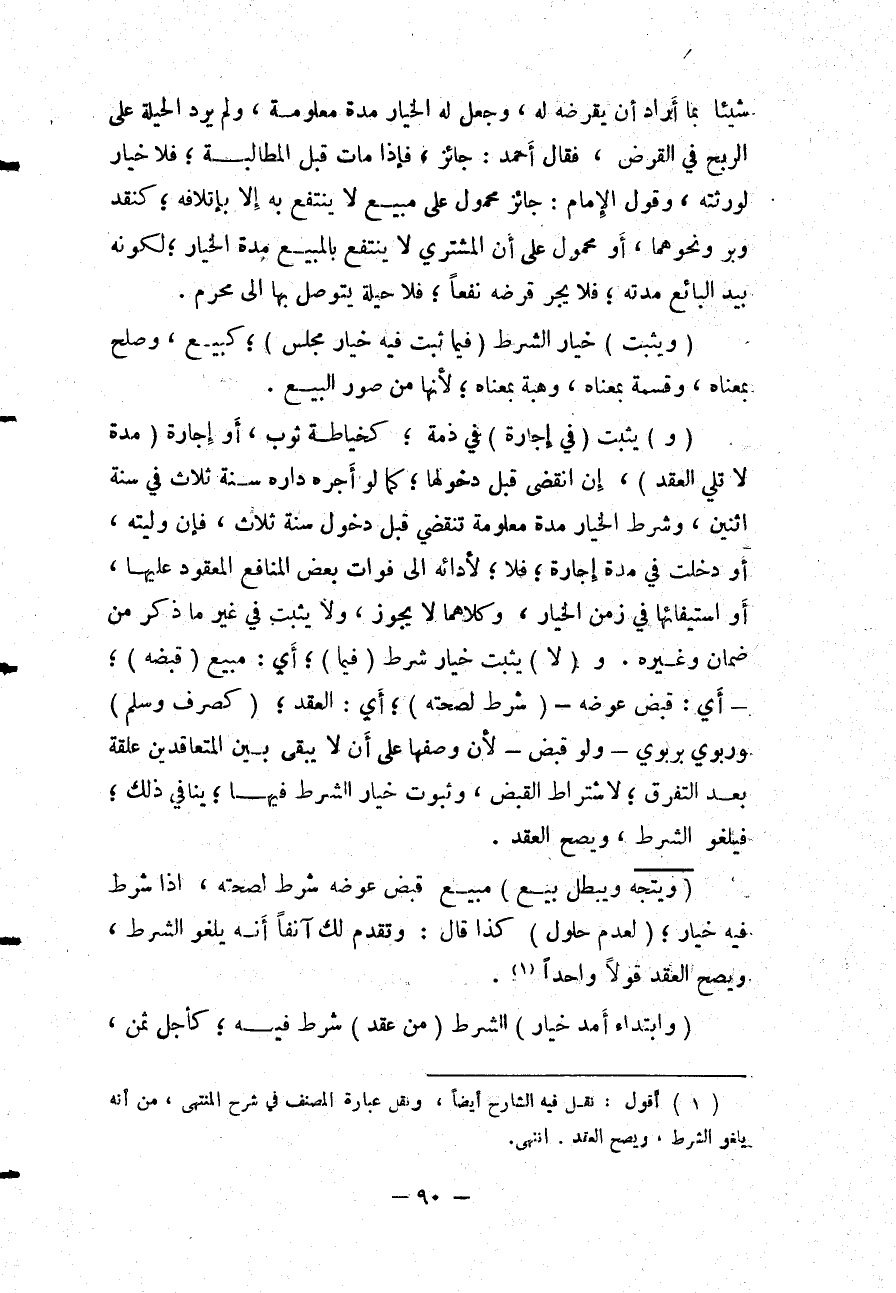 شيئا بما أراد أن يقرضه له ، وجعل له الخيار مدة معلومة ، ولم يرد الحيلة على
الربح في القرض ، فقال أحمد : جائز ، فإذا مات قبل المطالبة ؛ فلا خيار
لورثته ، وقول الإمام : جائز محمول على مبيع لا ينتفع به إلا بإتلافه ؛ كنقد
وبر ونحوهما ، أو محمول على أن المشتري لا ينتفع بالمبيع مدة الخيار ؛ لكونه
بيد البائع مدته ؛ فلا يجر قرضه نفعاً ؛ فلا حيلة يتوصل بها الى محرم .
( ويثبت ) خيار الشرط ( فيما ثبت فيه خيار مجلس ) ؛ كبيع ، وصلح
بمعناه ، وقسمة بمعناه ، وهبة بمعناه ؛ لأنها من صور البيع .
( و ) يثبت ( في إجارة ) في ذمة ؛ كخياطة ثوب ، أو إجارة ( مدة
لا تلي العقد ) ، إن انقضى قبل دخولها ؛ كما لو أجره داره سنة ثلاث في سنة
اثنين ، وشرط الخيار مدة معلومة تنقضي قبل دخول سنة ثلاث ، فإن وليته ،
أو دخلت في مدة إجارة ؛ فلا ؛ لأدائه الى فوات بعض المنافع المعقود عليها ،
أو استيفائها في زمن الخيار ، وكلاهما لا يجوز ، ولا يثبت في غير ما ذكر من
ضمان وغيره . و ( لا ) يثبت خيار شرط ( فيما ) ؛ أي : مبيع ( قبضه ) ؛
– أي : قبض عوضه – ( شرط لصحته ) ؛ أي : العقد ؛ ( كصرف وسلم )
وربوي بربوي – ولو قبض – لأن وصفها على أن لا يبقى بين المتعاقدين علقة
بعد التفرق ؛ لاشتراط القبض ، وثبوت خيار الشرط فيها ؛ ينافي ذلك ؛
فيلغو الشرط ، ويصح العقد .
( ويتجه ويبطل بيع ) مبيع قبض عوضه شرط لصحته ، اذا شرط
فيه خيار ؛ ( لعدم حلول ) كذا قال : وتقدم لك آنفاً أنه يلغو الشرط ،
ويصح العقد قولاً واحداً (١) .
( وابتداء أمد خيار ) الشرط ( من عقد ) شرط فيه ؛ كأجل ثمن ،
( ١ ) أقول : نقل فيه الشارح أيضاً ، ونقل عبارة المصنف في شرح المنتهى ، من أنه
يلغو الشرط ، ويصح العقد . انتهى.
– ٩٠ –